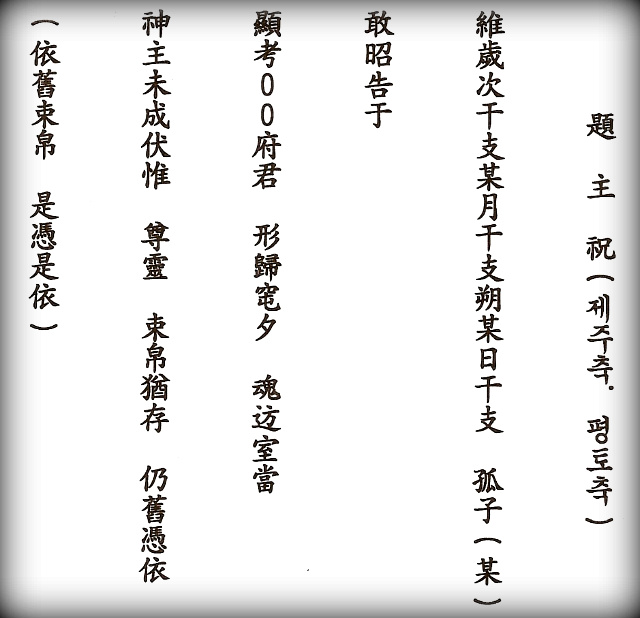 題 主 祝(제주축. 평토축)
維歲次干支某月干支朔某日干支 孤子(某)
敢昭告于
顯考00府君 形歸窀夕 魂迒室當
神主未成伏惟 尊靈 束帛猶存 仍舊憑依
(依舊束帛 是憑是依)